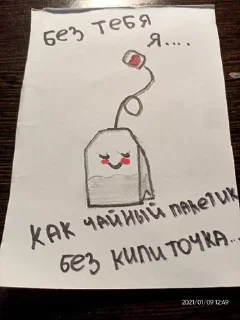 Без тебя
я....
как чайный пакетик
без кипиточка...
2021/01/09 12:49